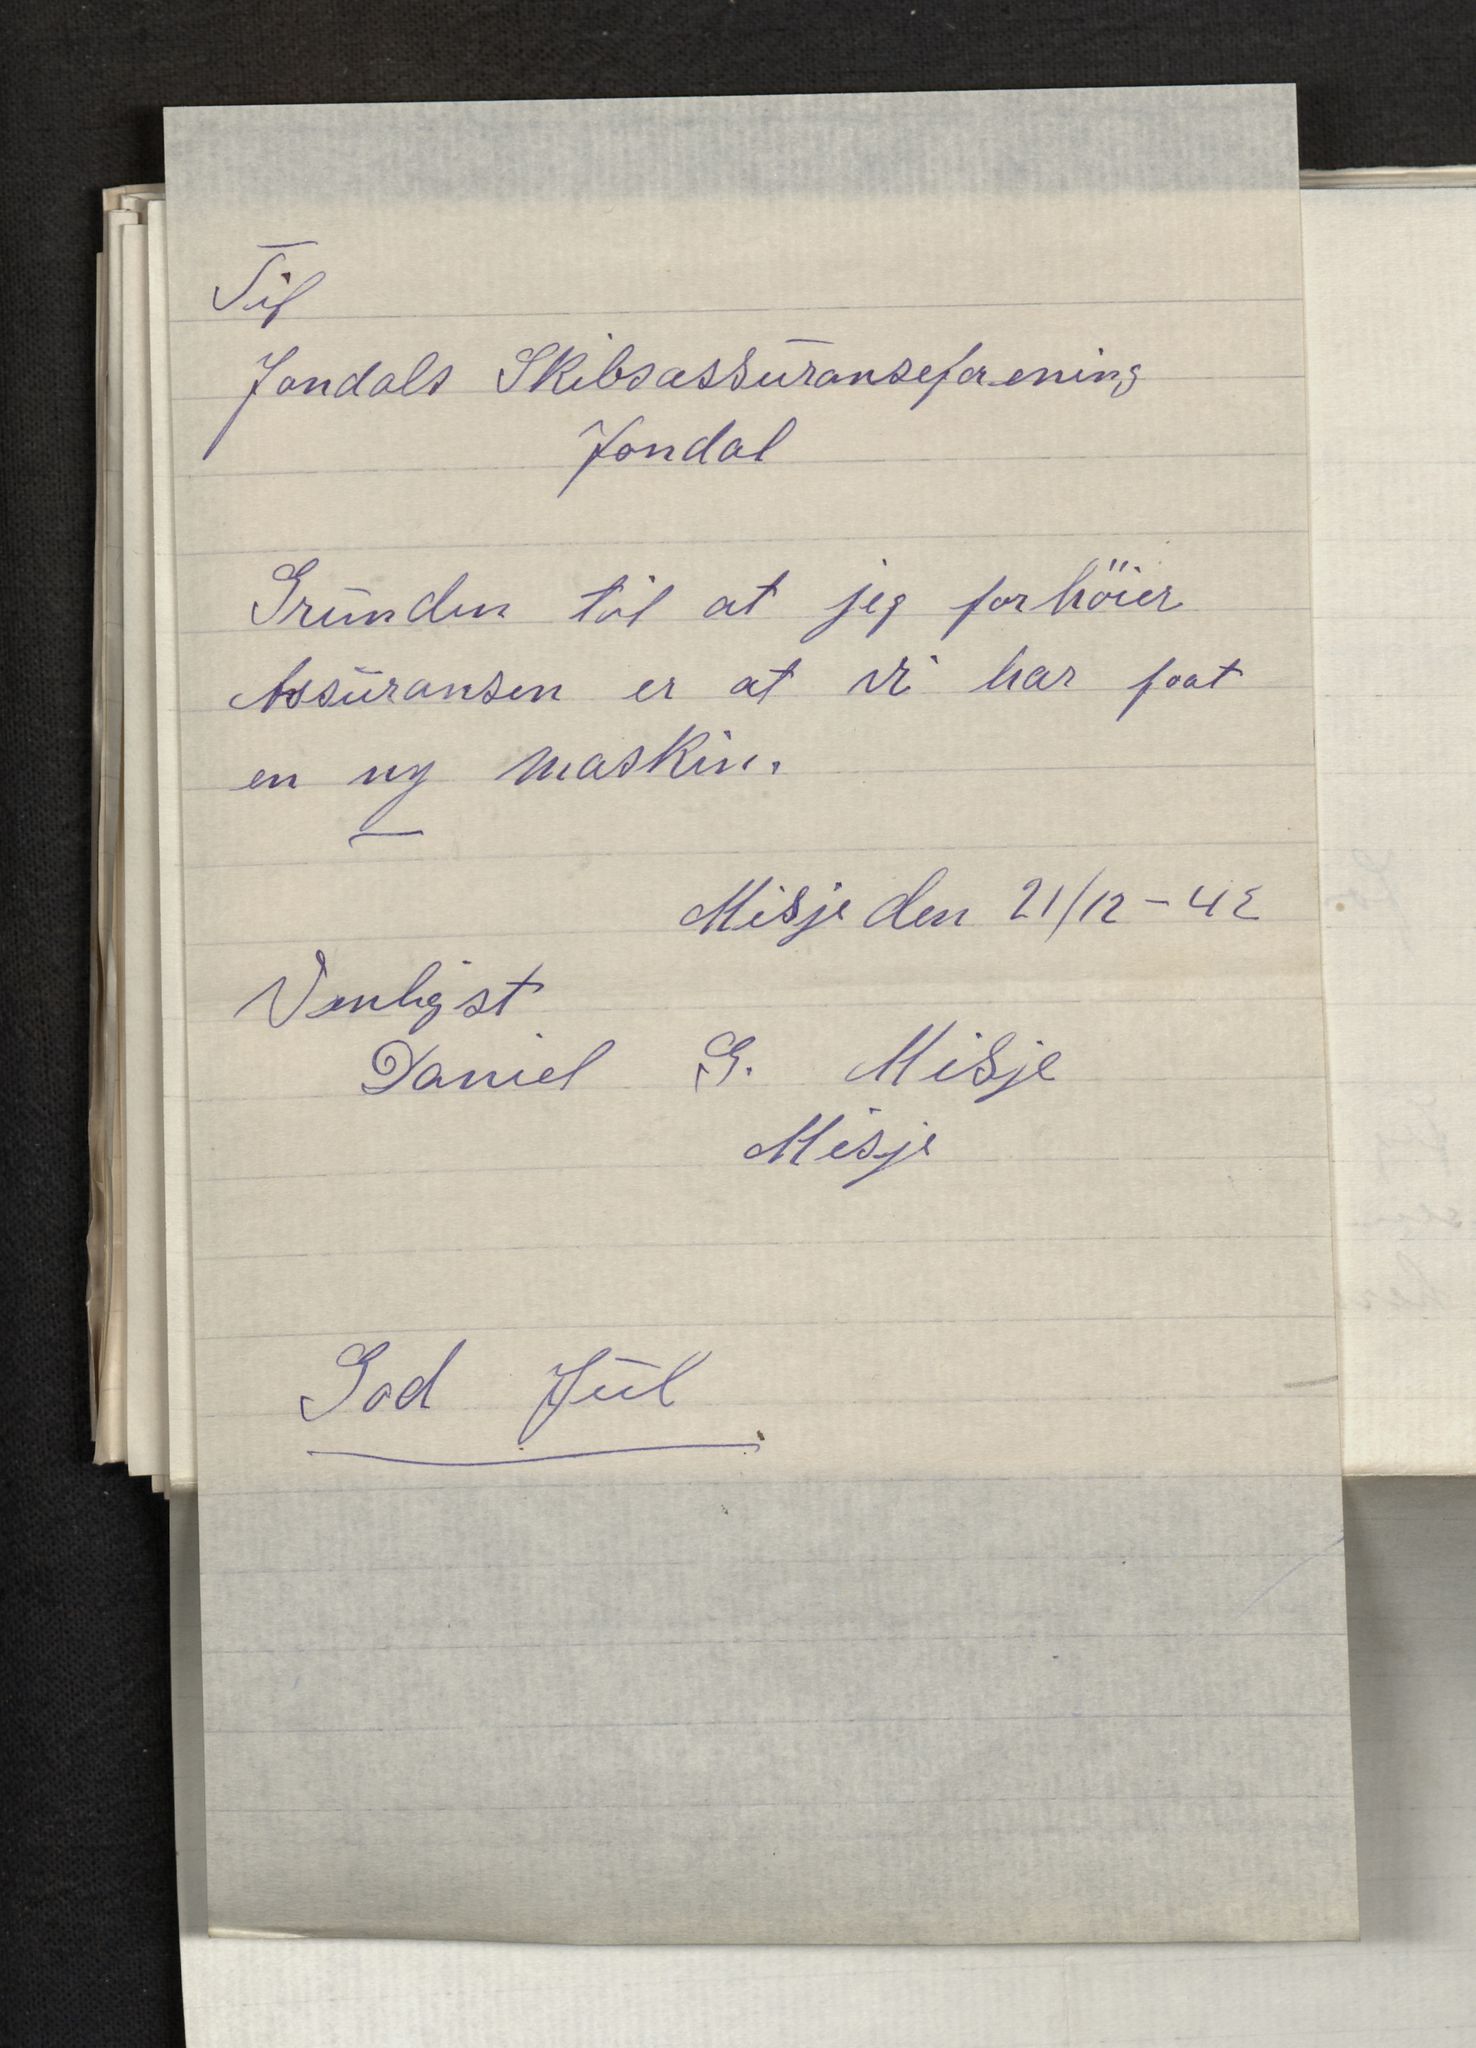 Til
Jondals Skibsassuranseforening
Jondal
Grunden til at jeg forhöier
Assuransen er at vi har faat
en ny maskin.
Misje den 21/12-42
Venligst
Daniel G. Misje
Misje
God Jul